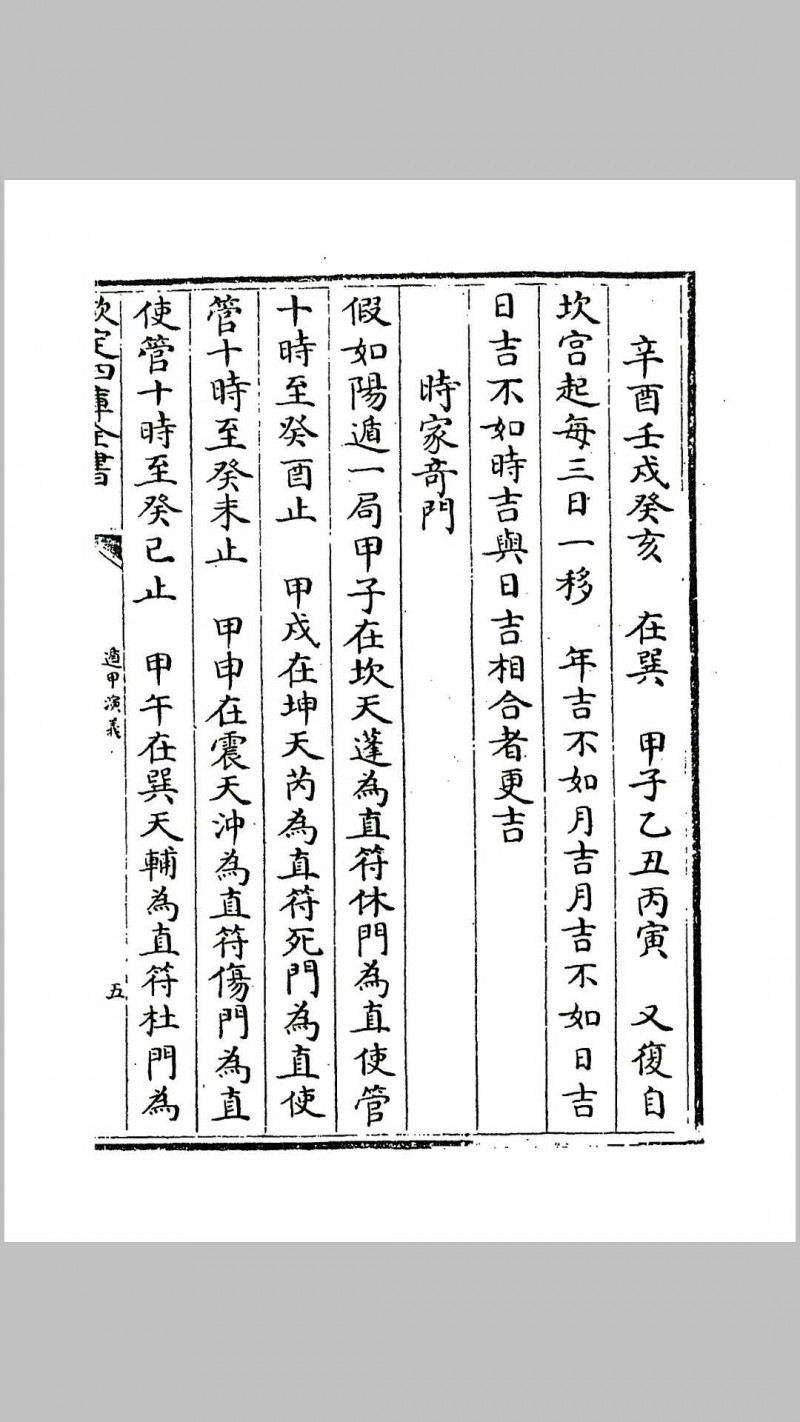 辛酉壬戌癸亥　在巽　甲子乙丑丙寅　又復自
坎宫起每三日一移　年吉不如月吉月吉不如日吉
日吉不如時吉與日吉相合者更吉
時家竒門
假如陽遁一局甲子在坎天蓬為直符休門為直使管
十時至癸酉止　甲戌在坤天芮為直符死門為直使
管十時至癸未止　甲申在震天沖為直符傷門為直
使管十時至癸巳止　甲午在巽天輔為直符杜門為
欽定四庫全書
遁甲演義
五